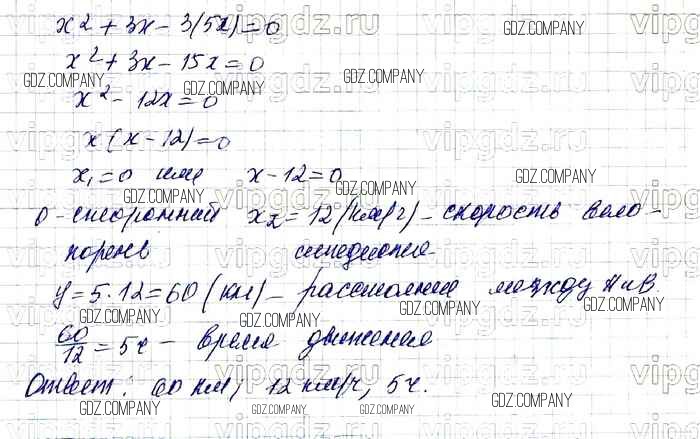 x² + 3x - 3(5x) = 0
x² + 3x - 15x = 0
x² - 12x = 0
x(x - 12) = 0
x₁ = 0 или x - 12 = 0
0 - посторонний x₂ = 12 (км/ч) - скорость вело-
корень сипедиста
y = 5·12 = 60 (км) - расстояние между A и B.
60/12 = 5ч - время движения
Ответ: 60 км; 12 км/ч, 5ч.
GDZ.COMPANY
vipgdz.ru